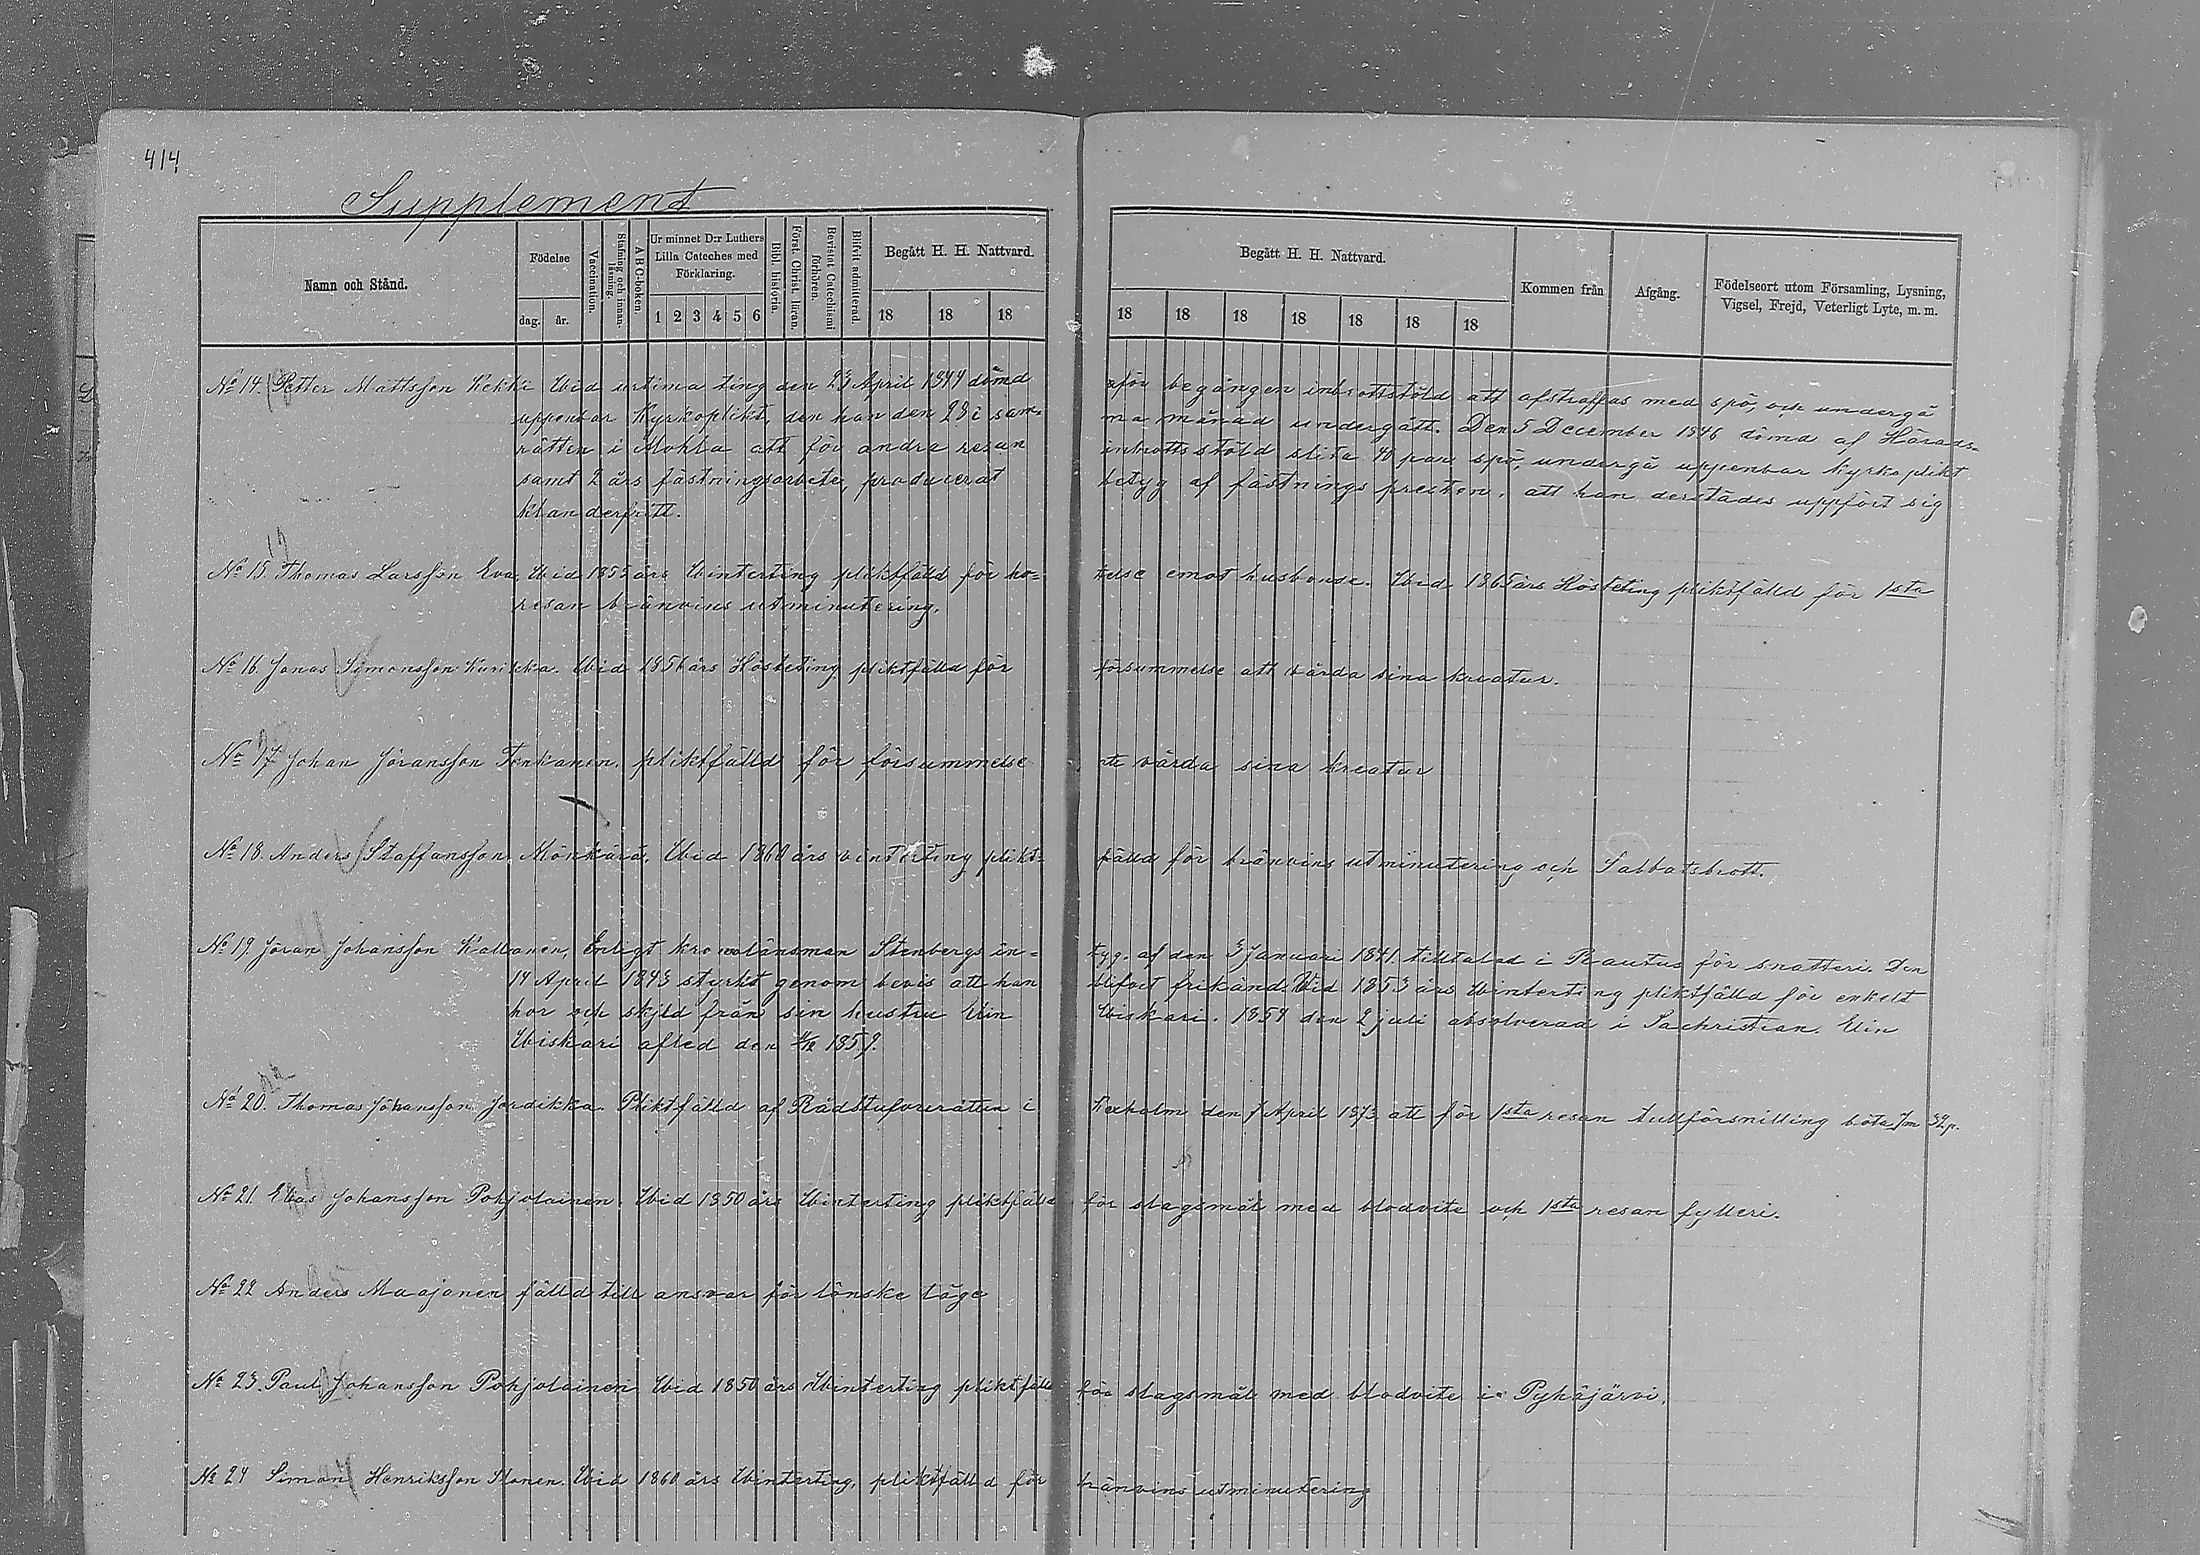 414
Supplement
Namn och Stånd.
Födelse
dag. år.
Vaccination.
Stafning och innanläsning.
ABC-boken.
Ur minnet D:r Luthers Lilla Cateches med Förklaring.
1 2 3 4 5 6
Bibl. historia.
Först. Christ. läran.
Bevistat Catechismi förhören.
Blifvit admitterad.
Begått H. H. Nattvard.
18 18 18
Begått H. H. Nattvard.
18 18 18 18 18 18 18
Kommen från
Afgång.
Födelseort utom Församling, Lysning, Vigsel, Frejd, Veterligt Lyte, m. m.
No 14. Petter Mattsson Kekki Wid urtima ting den 23 April 1844 dömd för begången inbrottsstöld att afstraffas med spö, och undergå
uppenbar Kyrkoplikt, den han den 28 i sam- ma månad undergått. Den 5 December 1846 dömd af Härads-
rätten i Mohla att för andra resan inbrotts stöld slita 40 par spö, undergå uppenbar kyrkoplikt
samt 2 års fästningsarbete, producerat betyg af fästnings presten, att han derstädes uppfört sig
klanderfritt.
No 15. Thomas Larsson Eva, Wid 1855 års Winterting pliktfälld för ho- telse emot husbonde. Wid 1865 års Hösteting pliktfälld för 1sta
resan bränvins utminutering.
No 16 Jonas Simonsson Kurikka. Wid 1856 års Hösteting pliktfälld för försummelse att vårda sina kreatur.
No 17 Johan Jöransson Tenkanen, pliktfälld för försummelse att vårda sina kreatur
No 18. Anders Staffansson Mönkärä, Wid 1860 års vinterting plikt- fälld för bränvins utminutering och Sabbatsbrott.
No 19. Jöran Johansson Kallanen, Enligt kronolänsman Stenbergs in- tyg. af den 3 Januari 1841 tilltalad i Rautus för snatteri. Den
14 April 1843 styrkt genom bevis att han blifvit frikänd Wid 1853 års Winterting pliktfälld för enkelt
hor och skjld från sin hustru Elin Wiskari. 1854 den 2 juli absolverad i Sachristian. Elin
Wiskari afled den 1859.
No 20. Thomas Johansson Jordikka. Pliktfälld af Rådstufvurätten i Kexholm den 7 April 1873 att för 1sta resan tullförsnilling böta 7m 32p.
No 21. Elias Johansson Pohjolainen. Wid 1850 års Winterting pliktfälld för slagsmål med blodvite och 1sta resan fylleri.
No 22 Anders Maajanen fälld till ansvar för lönske läge
No 23. Paul Johansson Pohjolainen Wid 1850 års Winterting pliktfälld för slagsmål med blodvite i Pyhäjärvi.
No 24 Simon Henriksson Ilonen. Wid 1860 års Winterting, pliktfälld för bränvins utminutering